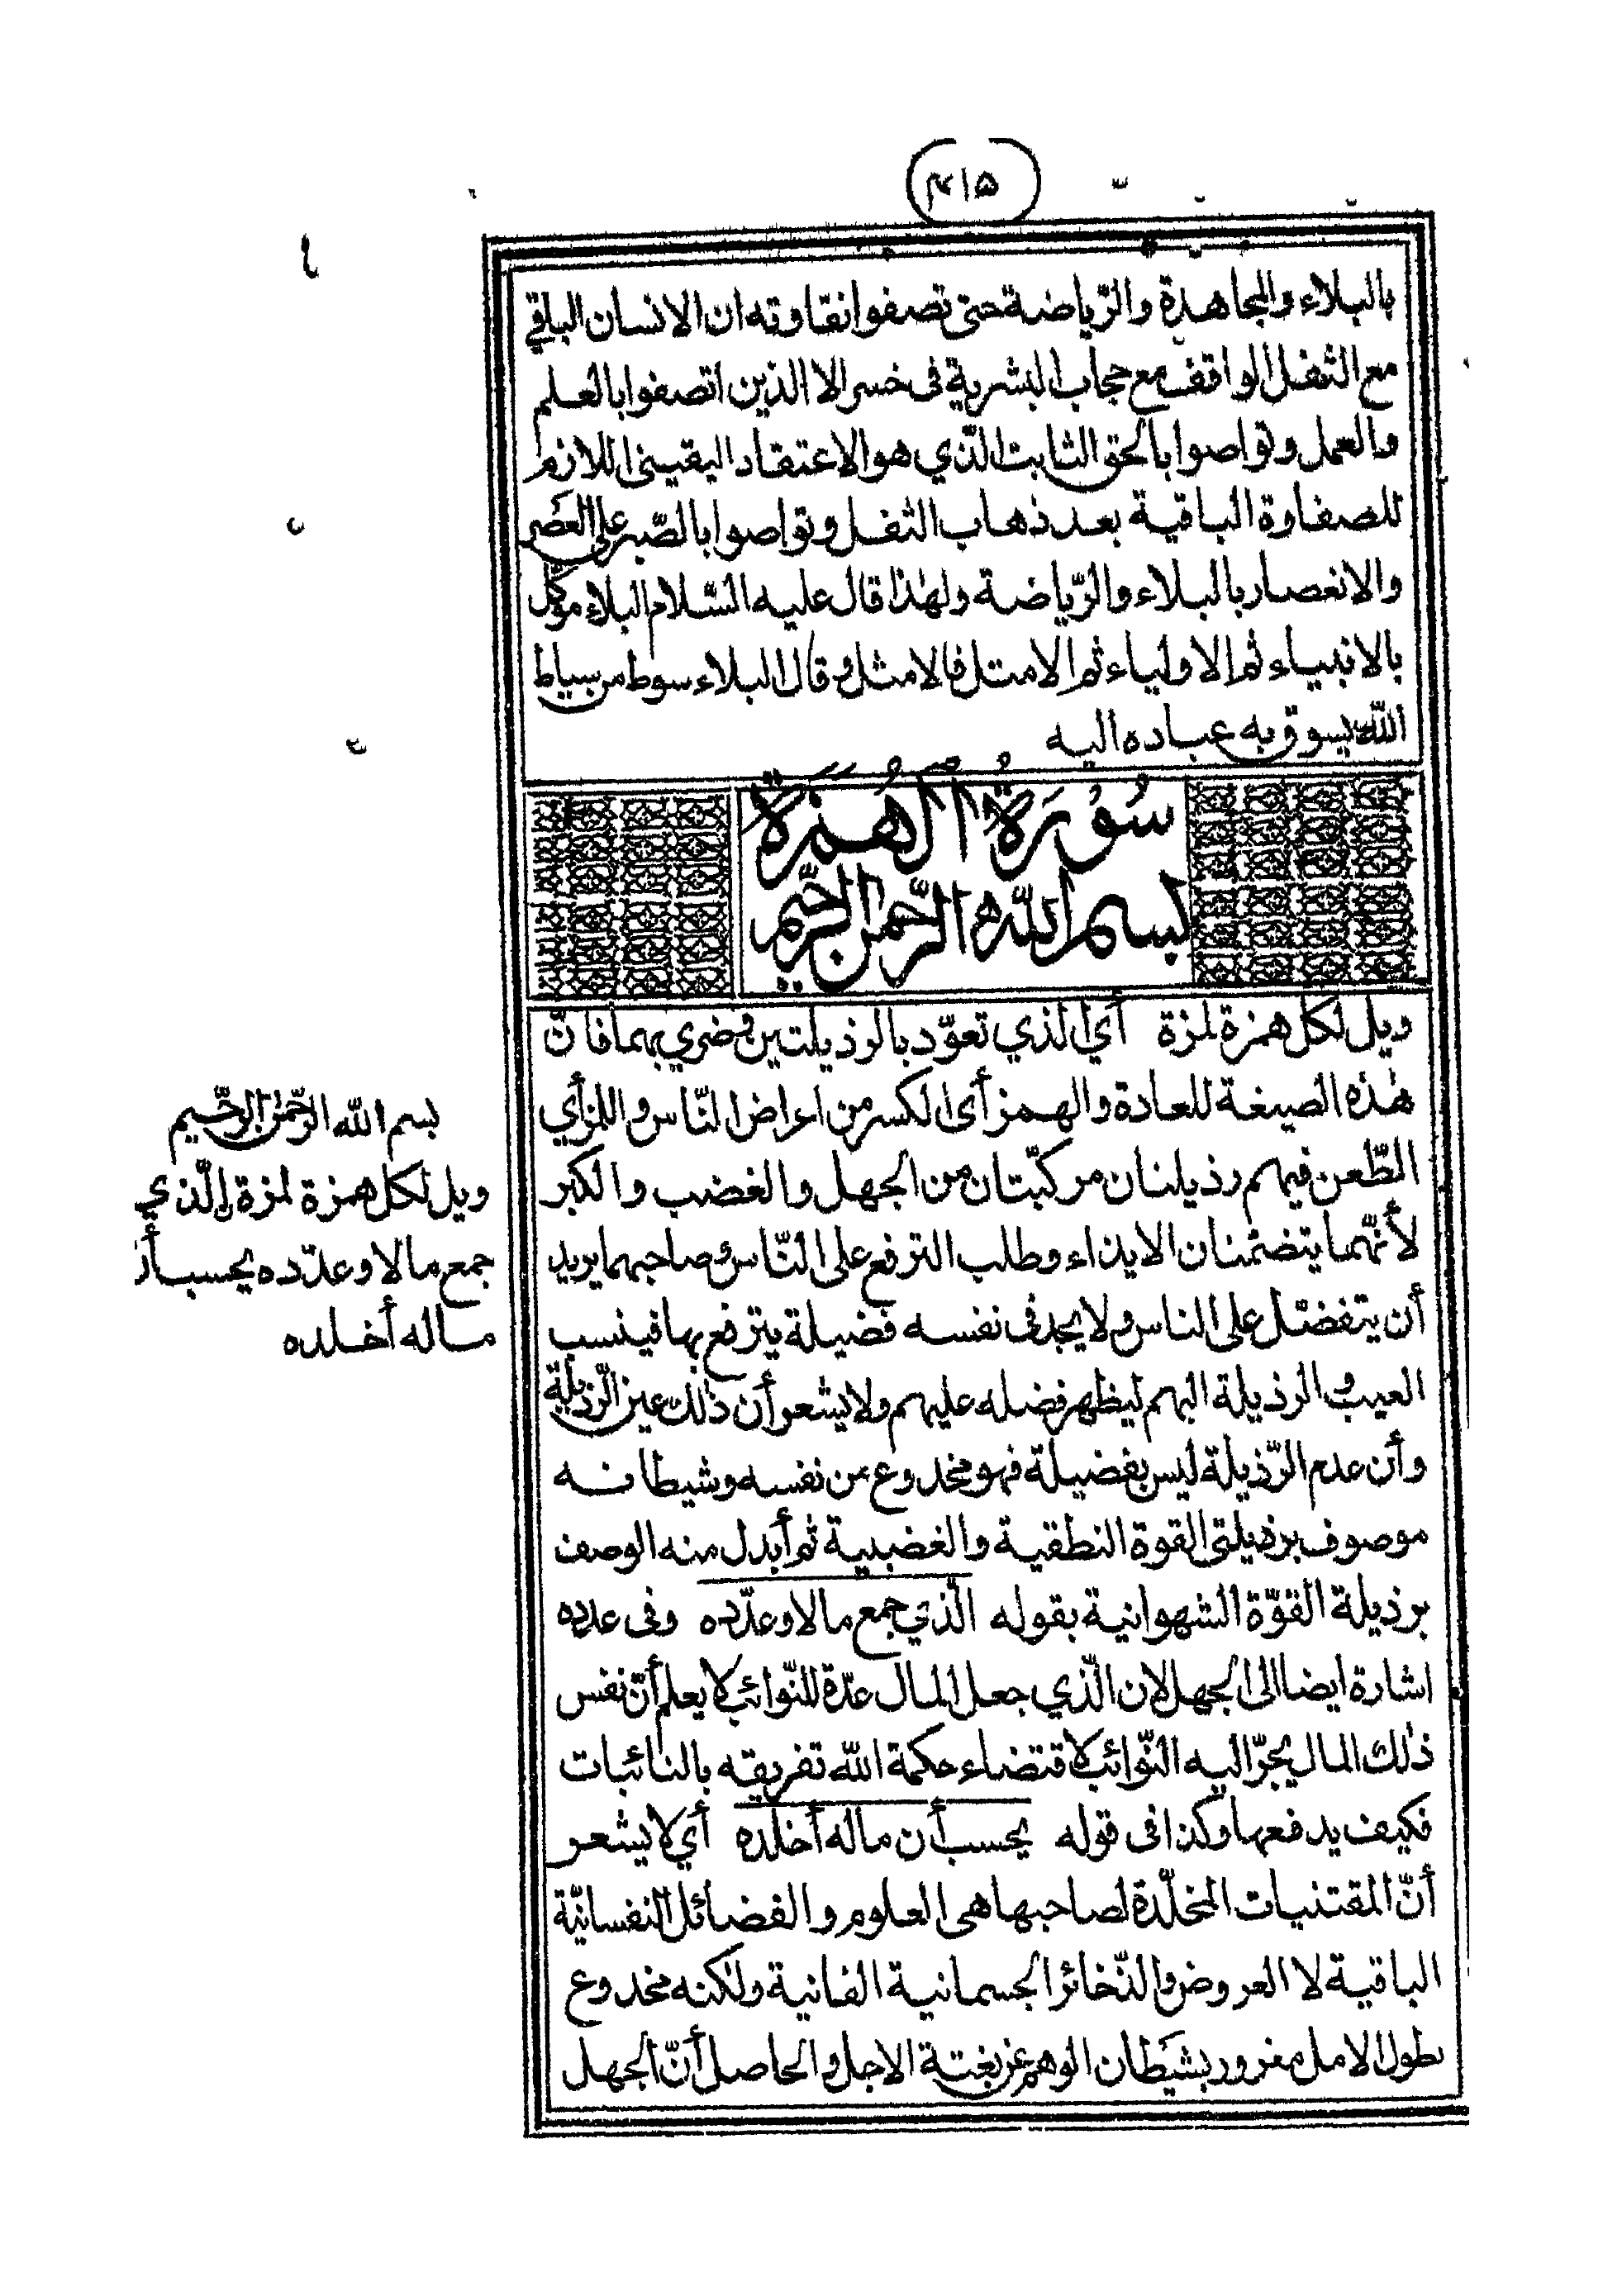 ٤١٥
بالبلاء والمجاهدة والرّياضة حتى تصفوا نقاوته ان الانسان الباقي
مع الثفل الواقف مع حجاب البشرية فى خسر الا الذين اتصفوا بالعلم
والعمل وتواصوا بالحق الثابت الّذي هو الاعتقاد اليقينى اللازم
للصفاوة الباقية بعد ذهاب الثفل وتواصوا بالصّبر على العصر
والانعصار بالبلاء والرّياضة ولهذا قال عليه السّلام البلاء موكّل
بالانبياء ثم الاولياء ثم الامثل فالامثل وقال البلاء سوط من سياط
الله يسوق به عباده اليه
سُوْرَةُ الْهُمَزَةِ
بسم الله الرّحمن الرّحيم
ويل لكل همزة لمزة أي الذي تعوّد بالرذيلتين وضري بهما فانّ
هذه الصيغة للعادة والهمز أى الكسر من اعراض النّاس واللمز أي
الطّعن فيهم رذيلتان مركبّتان من الجهل والغضب والكبر
لأنهّما يتضمنان الايذاء وطلب الترفع على النّاس وصاحبهما يريد
أن يتفضّل على الناس ولا يجد فى نفسه فضيلة يترفع بها فينسب
العيب والرذيلة اليهم ليظهر فضله عليهم ولا يشعر أن ذلك عين الرّذيلة
وأن عدم الرّذيلة ليس بفضيلة فهو مخدوع من نفسه وشيطانه
موصوف برذيلتى القوة النطقية والغضبية ثم أبدل منه الوصف
برذيلة القوّة الشهوانية بقوله الّذي جمع مالا وعدّده وفى عدده
اشارة ايضا الى الجهل لان الّذي جعل المال عدّة للنّوائب لا يعلم أنّ نفس
ذلك المال يجرّ اليه النّوائب لاقتضاء حكمة الله تفريقه بالنائبات
فكيف يدفعها وكذا فى قوله يحسب أن ماله أخلده أي لا يشعر
أنّ المقتنيات المخلّدة لصاحبها هى العلوم والفضائل النفسانيّة
الباقية لا العروض والذّخائر الجسمانية الفانية ولكنه مخدوع
بطول الامل مغرور بشيطان الوهم عن بغتة الاجل والحاصل أنّ الجهل
بسم الله الرّحمن الرّحيم
ويل لكل همزة لمزة الّذي
جمع مالا وعدّده يحسب أن
ماله أخلده